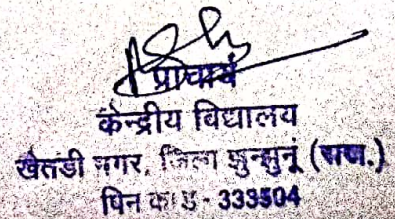 प्राचार्य
केन्द्रीय विद्यालय
खेतडी नगर, जिला झुन्झुनूं (राज.)
पिन कोड - 333504